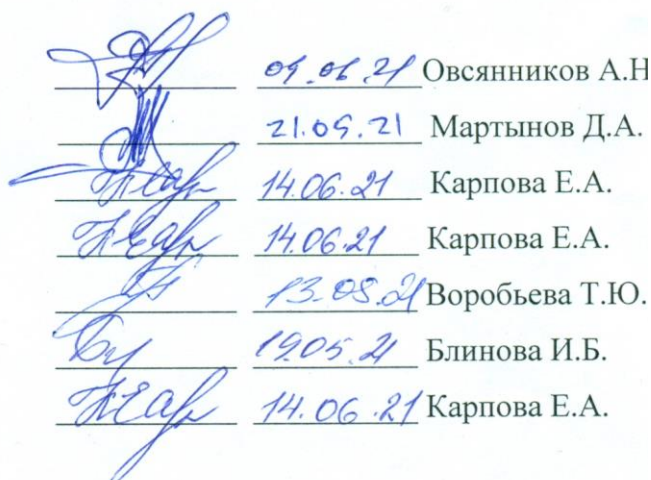 04.06.21 Овсянников А.Н
21.05.21 Мартынов Д.А.
14.06.21 Карпова Е.А.
14.06.21 Карпова Е.А.
13.05.21 Воробьева Т.Ю.
19.05.21 Блинова И.Б.
14.06.21 Карпова Е.А.